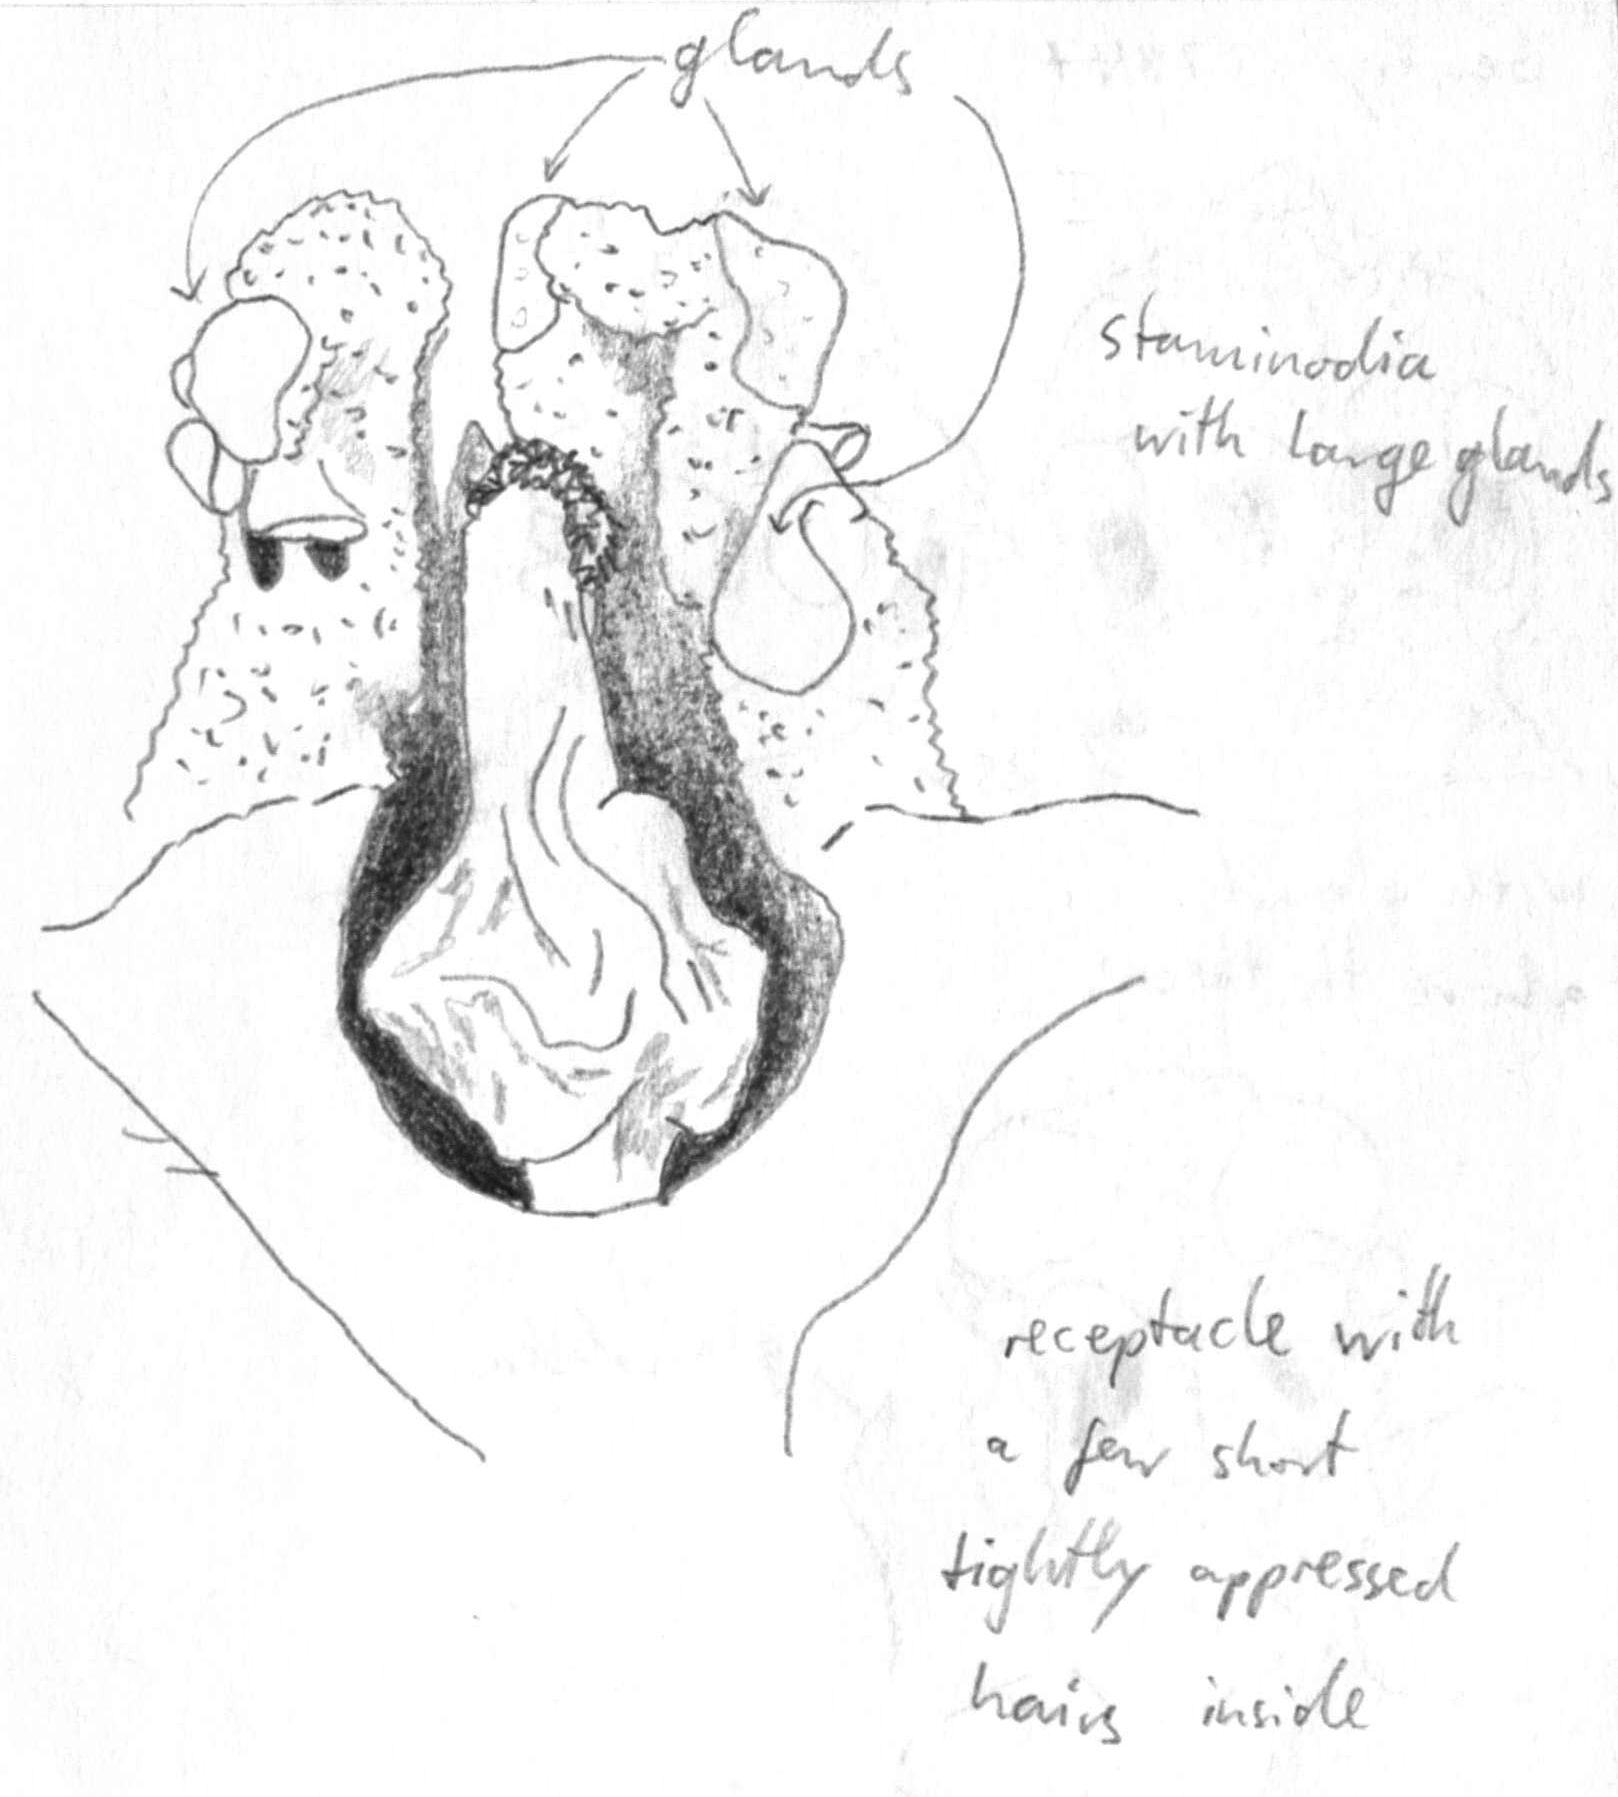 glands
staminodia
with large glands
receptacle with
a few short
tightly appressed
hairs inside